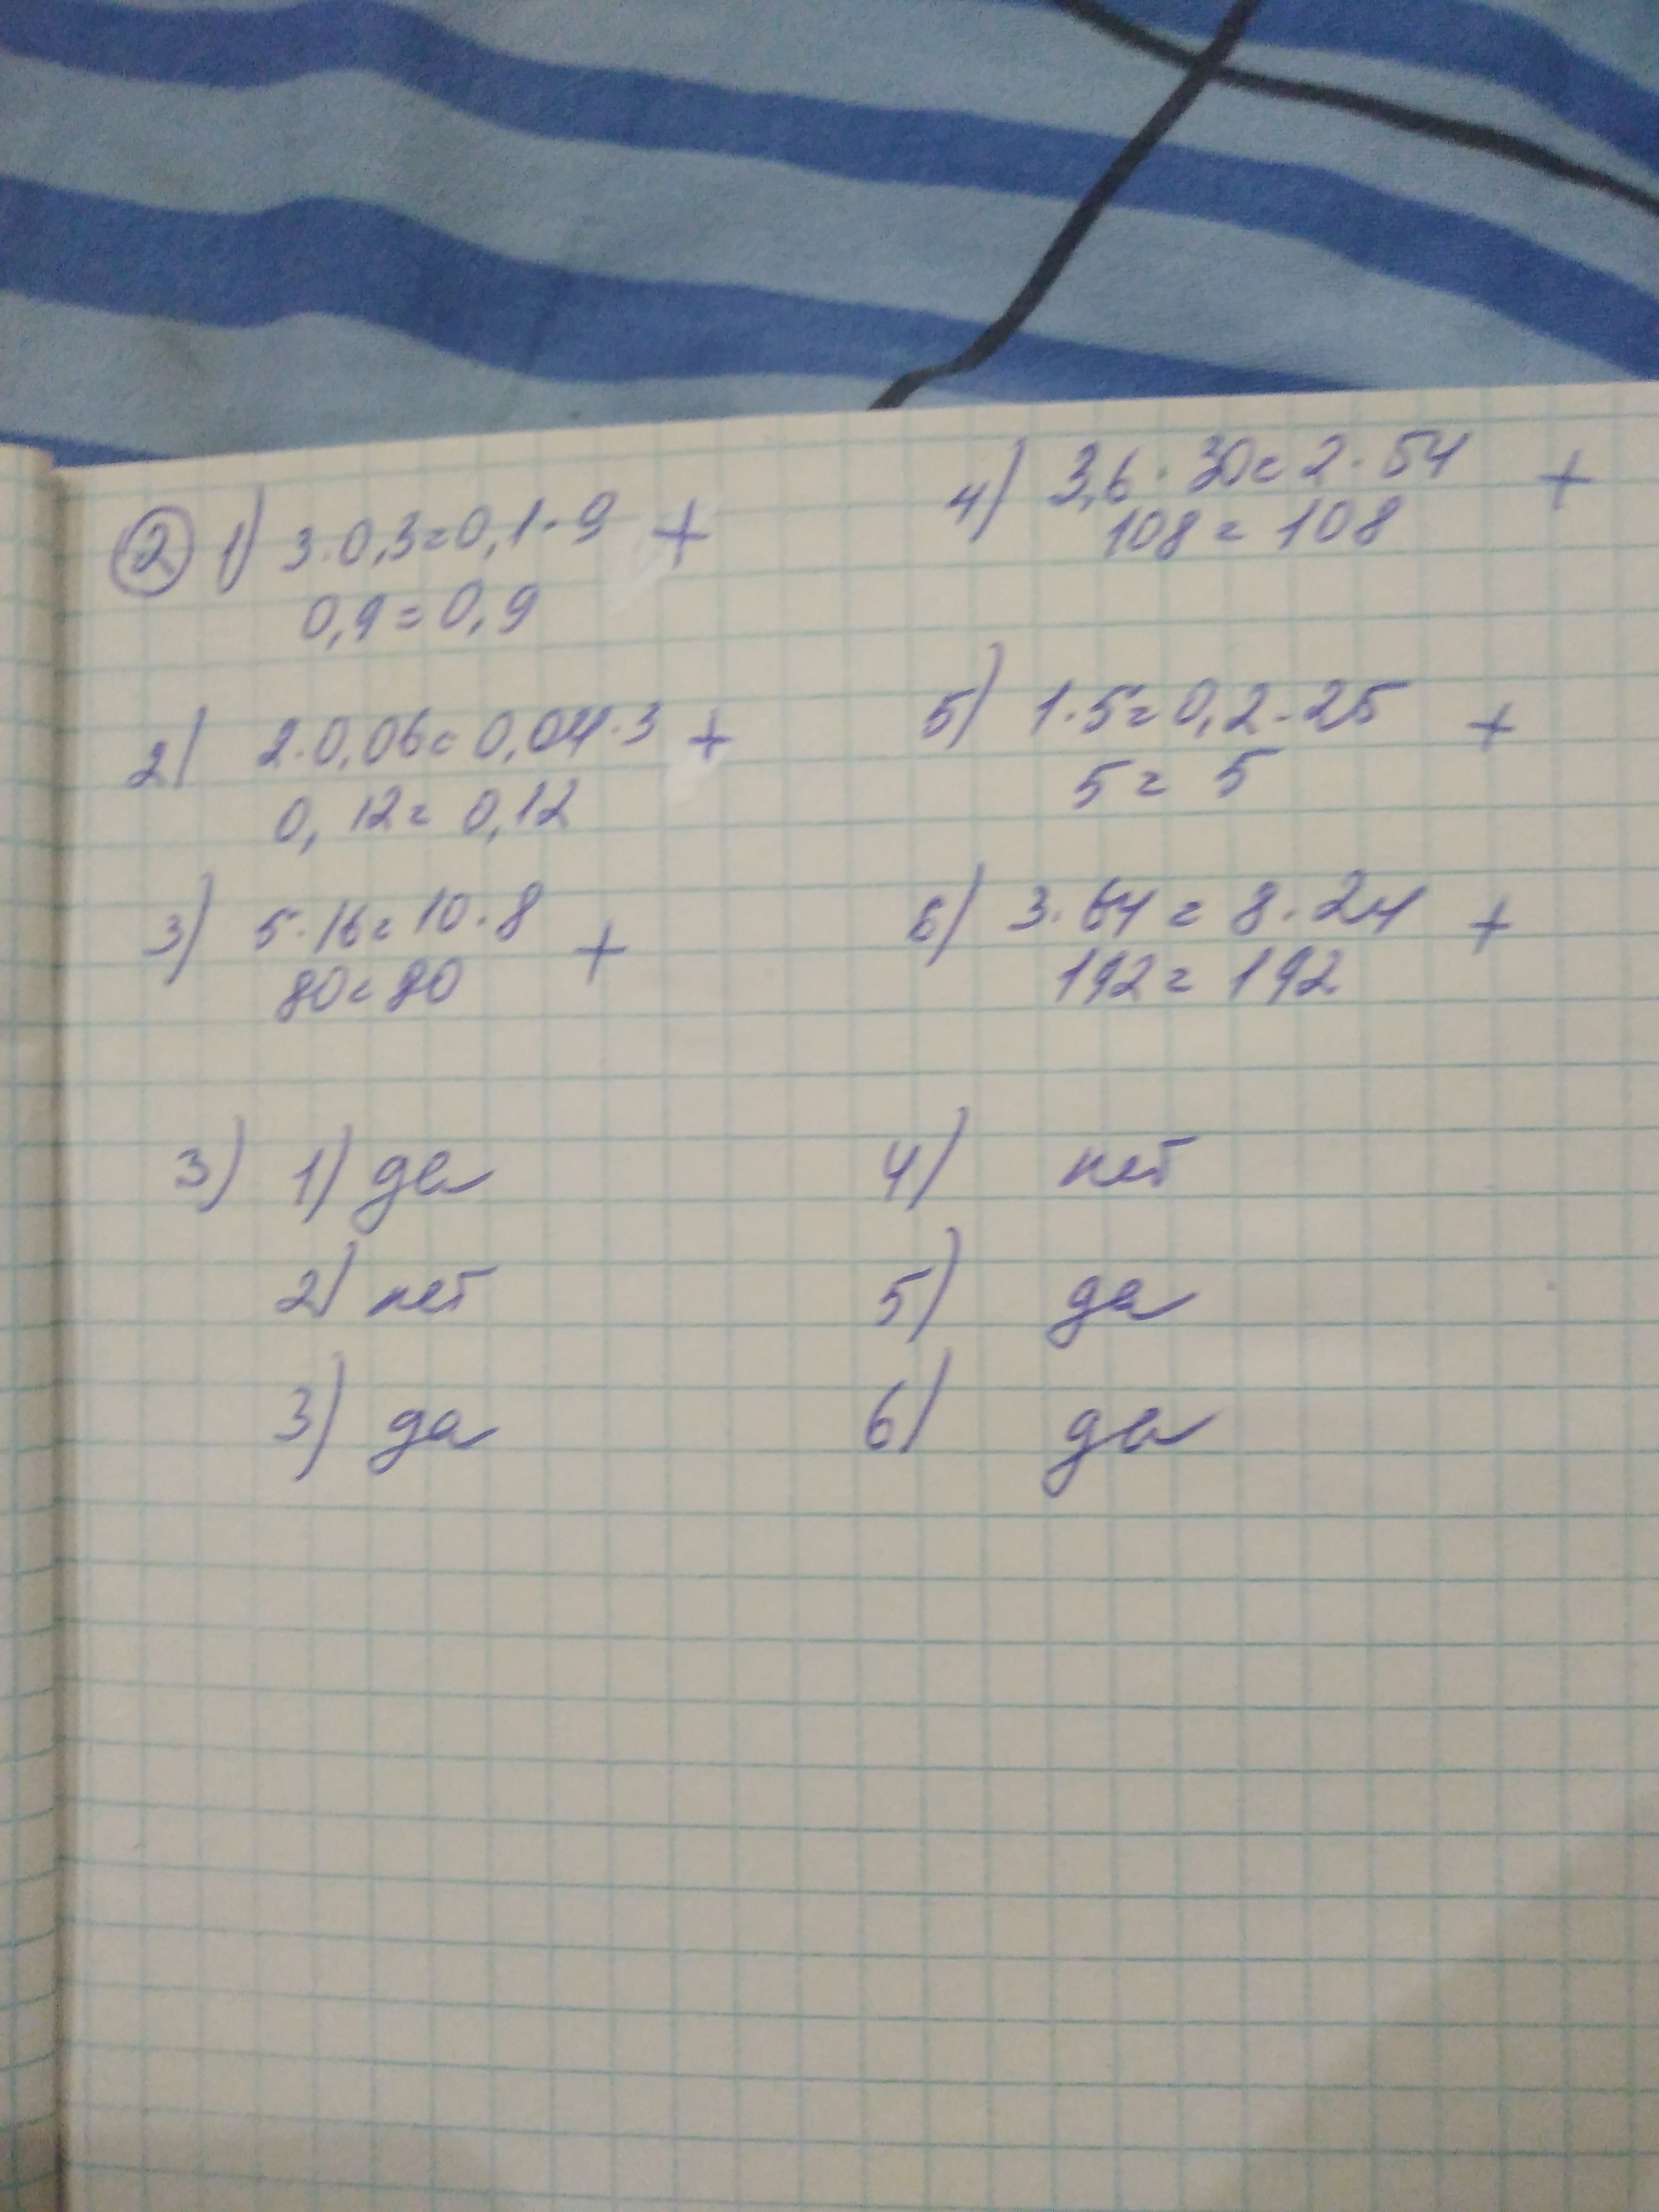 2 1) 3·0,3=0,1·9 +
0,9=0,9
2) 2·0,06=0,04·3 +
0,12=0,12
3) 5·16=10·8 +
80=80
4) 3,6·30=2·54 +
108=108
5) 1·5=0,2·25 +
5=5
6) 3·64=8·24 +
192=192
3) 1) да
2) нет
3) да
4) нет
5) да
6) да